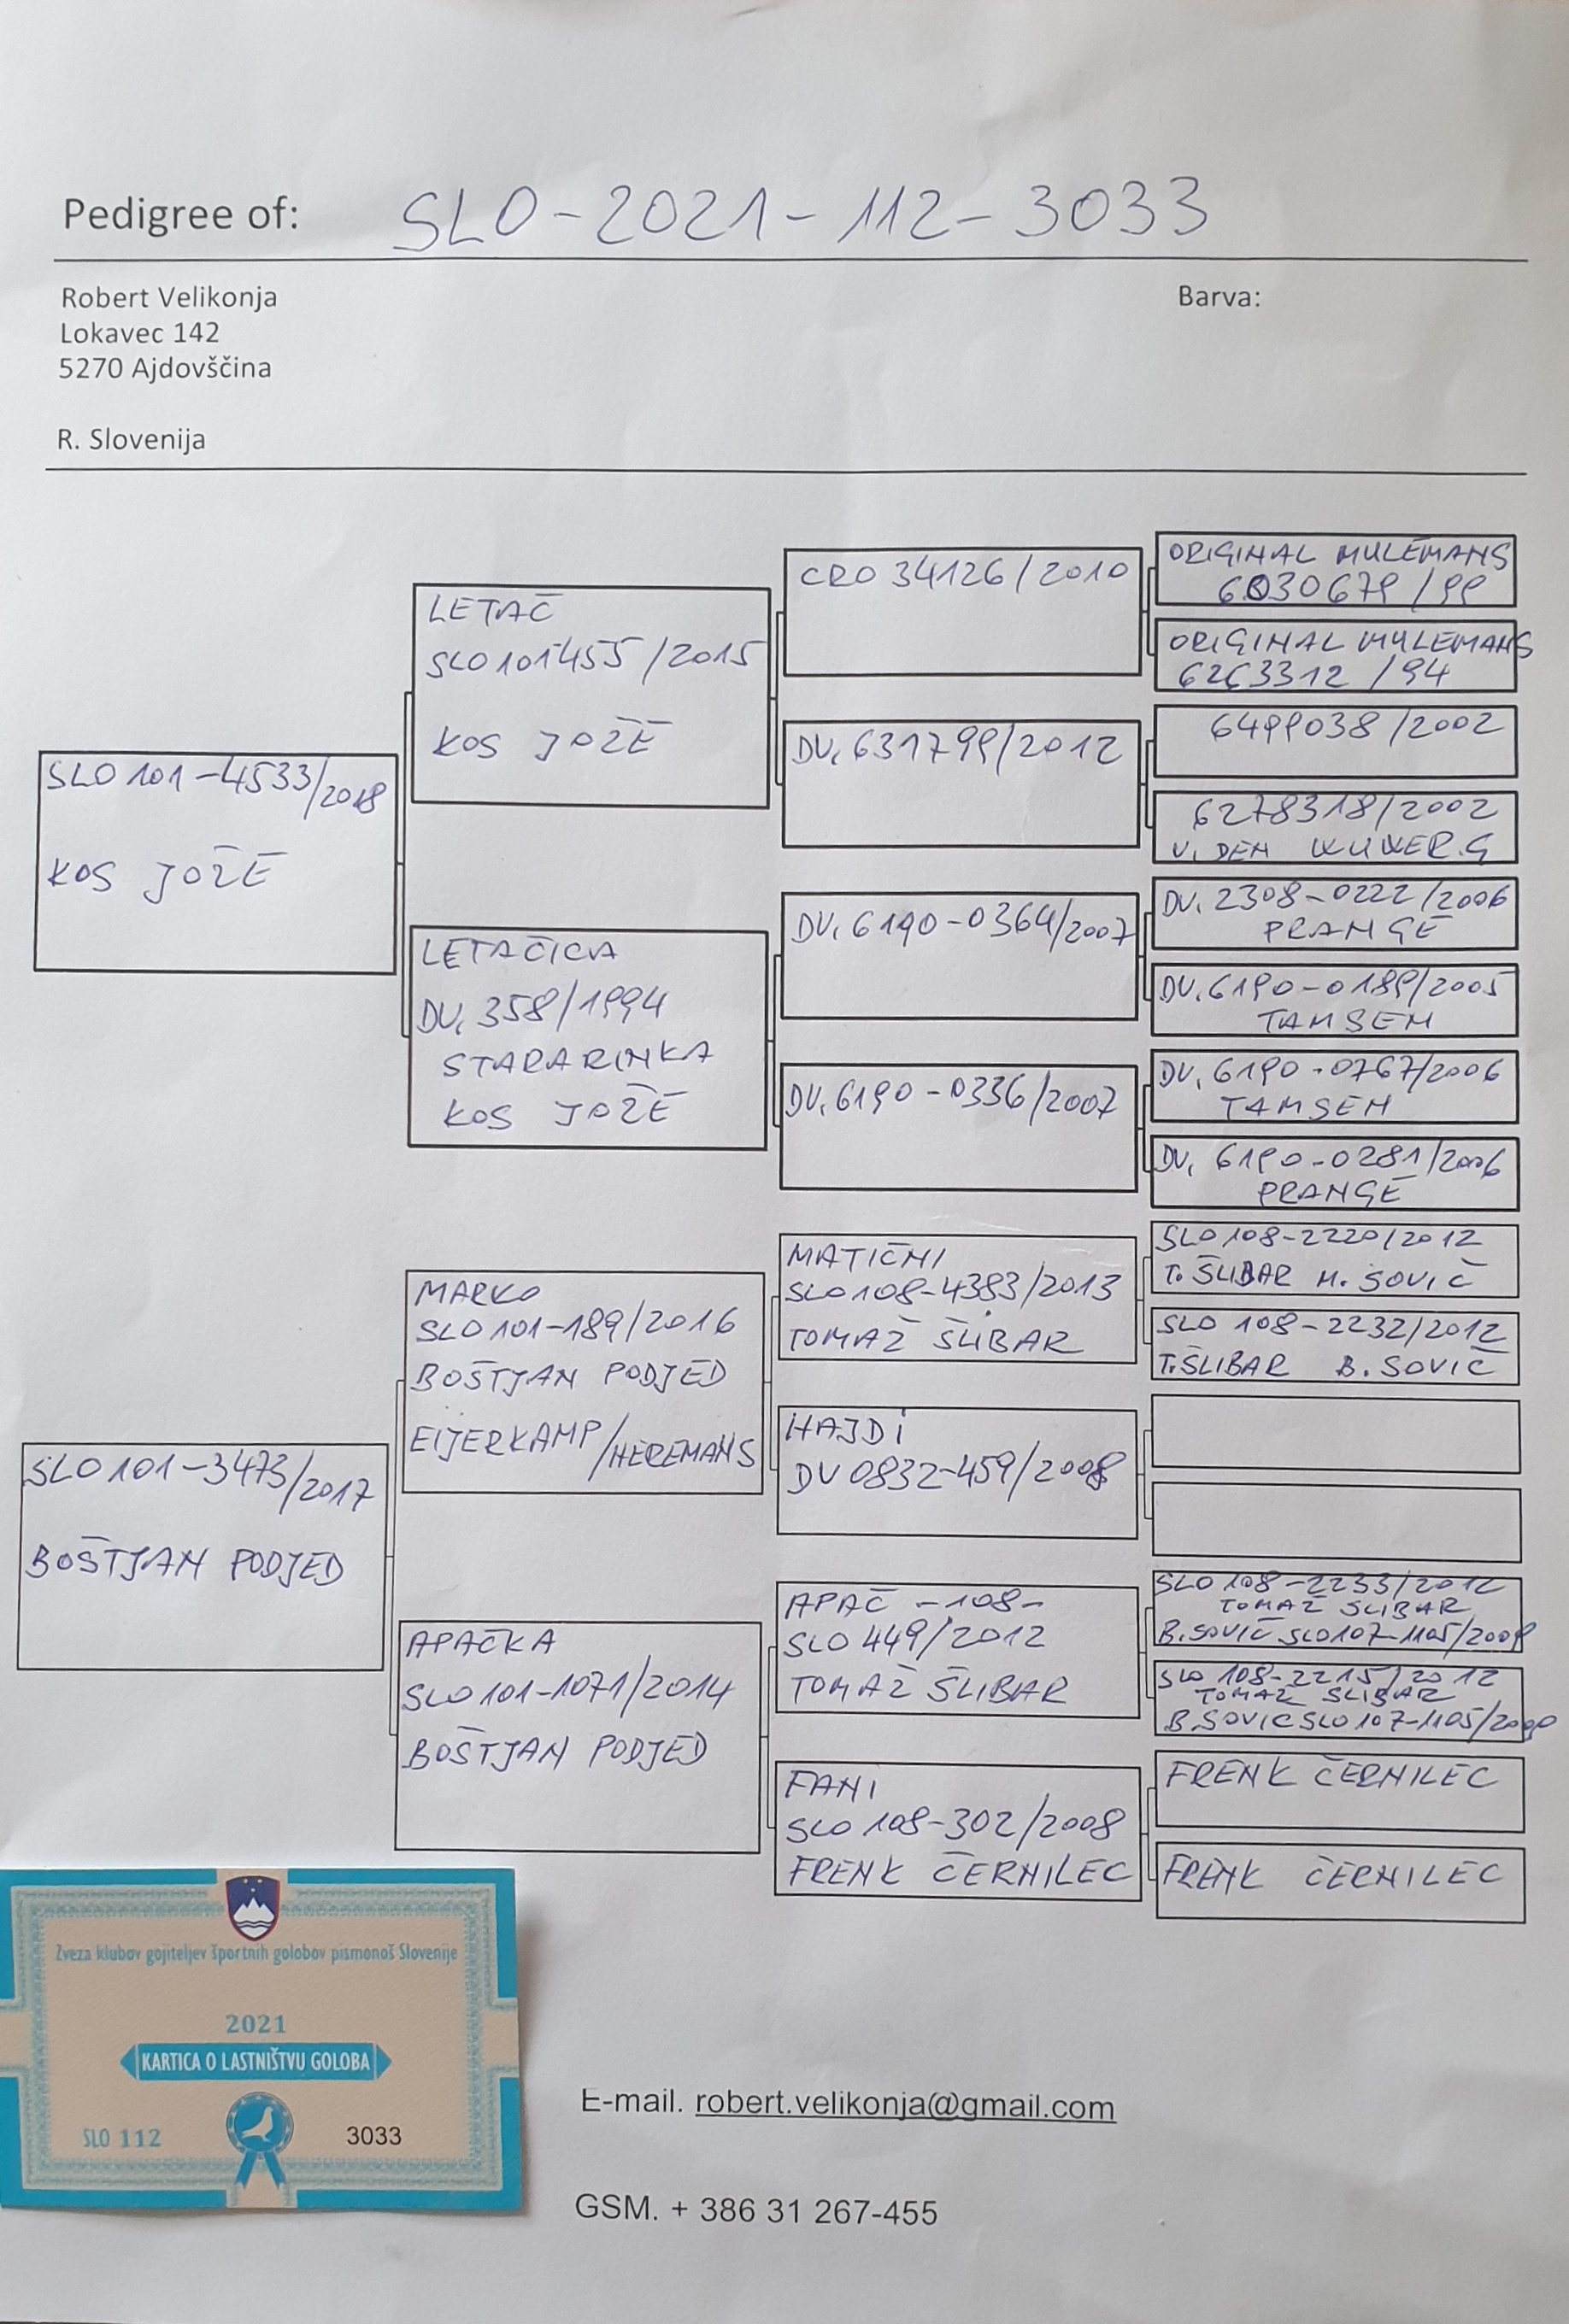 Pedigree of: SLO-2021-112-3033
Robert Velikonja
Barva:
Lokavec 142
5270 Ajdovščina
R. Slovenija
SLO 101-4533/2018
KOS JOŽE
LETAČ
SLO 101455/2015
KOS JOŽE
LETAČICA
DV. 358/1994
STARARINKA
KOS JOŽE
CRO 34126/2010
DV. 631799/2012
DV. 6190-0364/2007
DV. 6190-0336/2007
ORIGINAL MULEMANS
6030679/99
ORIGINAL MULEMANS
6263312/94
6499038/2002
6278318/2002
V. DEN
DV. 2308-0222/2006
PRANGE
DV. 6190-0189/2005
TAMSEN
DV. 6190-0767/2006
TAMSEN
DV. 6190-0281/2006
PRANGE
SLO 101-3473/2017
BOŠTJAN PODJED
MARKO
SLO 101-189/2016
BOŠTJAN PODJED
EIJERKAMP/HEREMANS
APAČKA
SLO 101-1071/2014
BOŠTJAN PODJED
MATIČNI
SLO 108-4383/2013
TOMAŽ ŠLIBAR
HAJDI
DV 0832-459/2008
APAČ -108-
SLO 449/2012
TOMAŽ ŠLIBAR
FANI
SLO 108-302/2008
FRENK ČERNILEC
SLO 108-2220/2012
T. ŠLIBAR M. SOVIČ
SLO 108-2232/2012
T. ŠLIBAR B. SOVIČ
SLO 108-2233/2012
TOMAŽ SLIBAR
B. SOVIČ SLO 107-1105/2009
SLO 108-2215/2012
TOMAŽ SLIBAR
B. SOVIC SLO 107-1105/2009
FRENK ČERNILEC
FRENK ČERNILEC
Zveza klubov gojiteljev športnih golobov pismonoš Slovenije
2021
KARTICA O LASTNIŠTVU GOLOBA
SLO 112 3033
E-mail. robert.velikonja@gmail.com
GSM. + 386 31 267-455